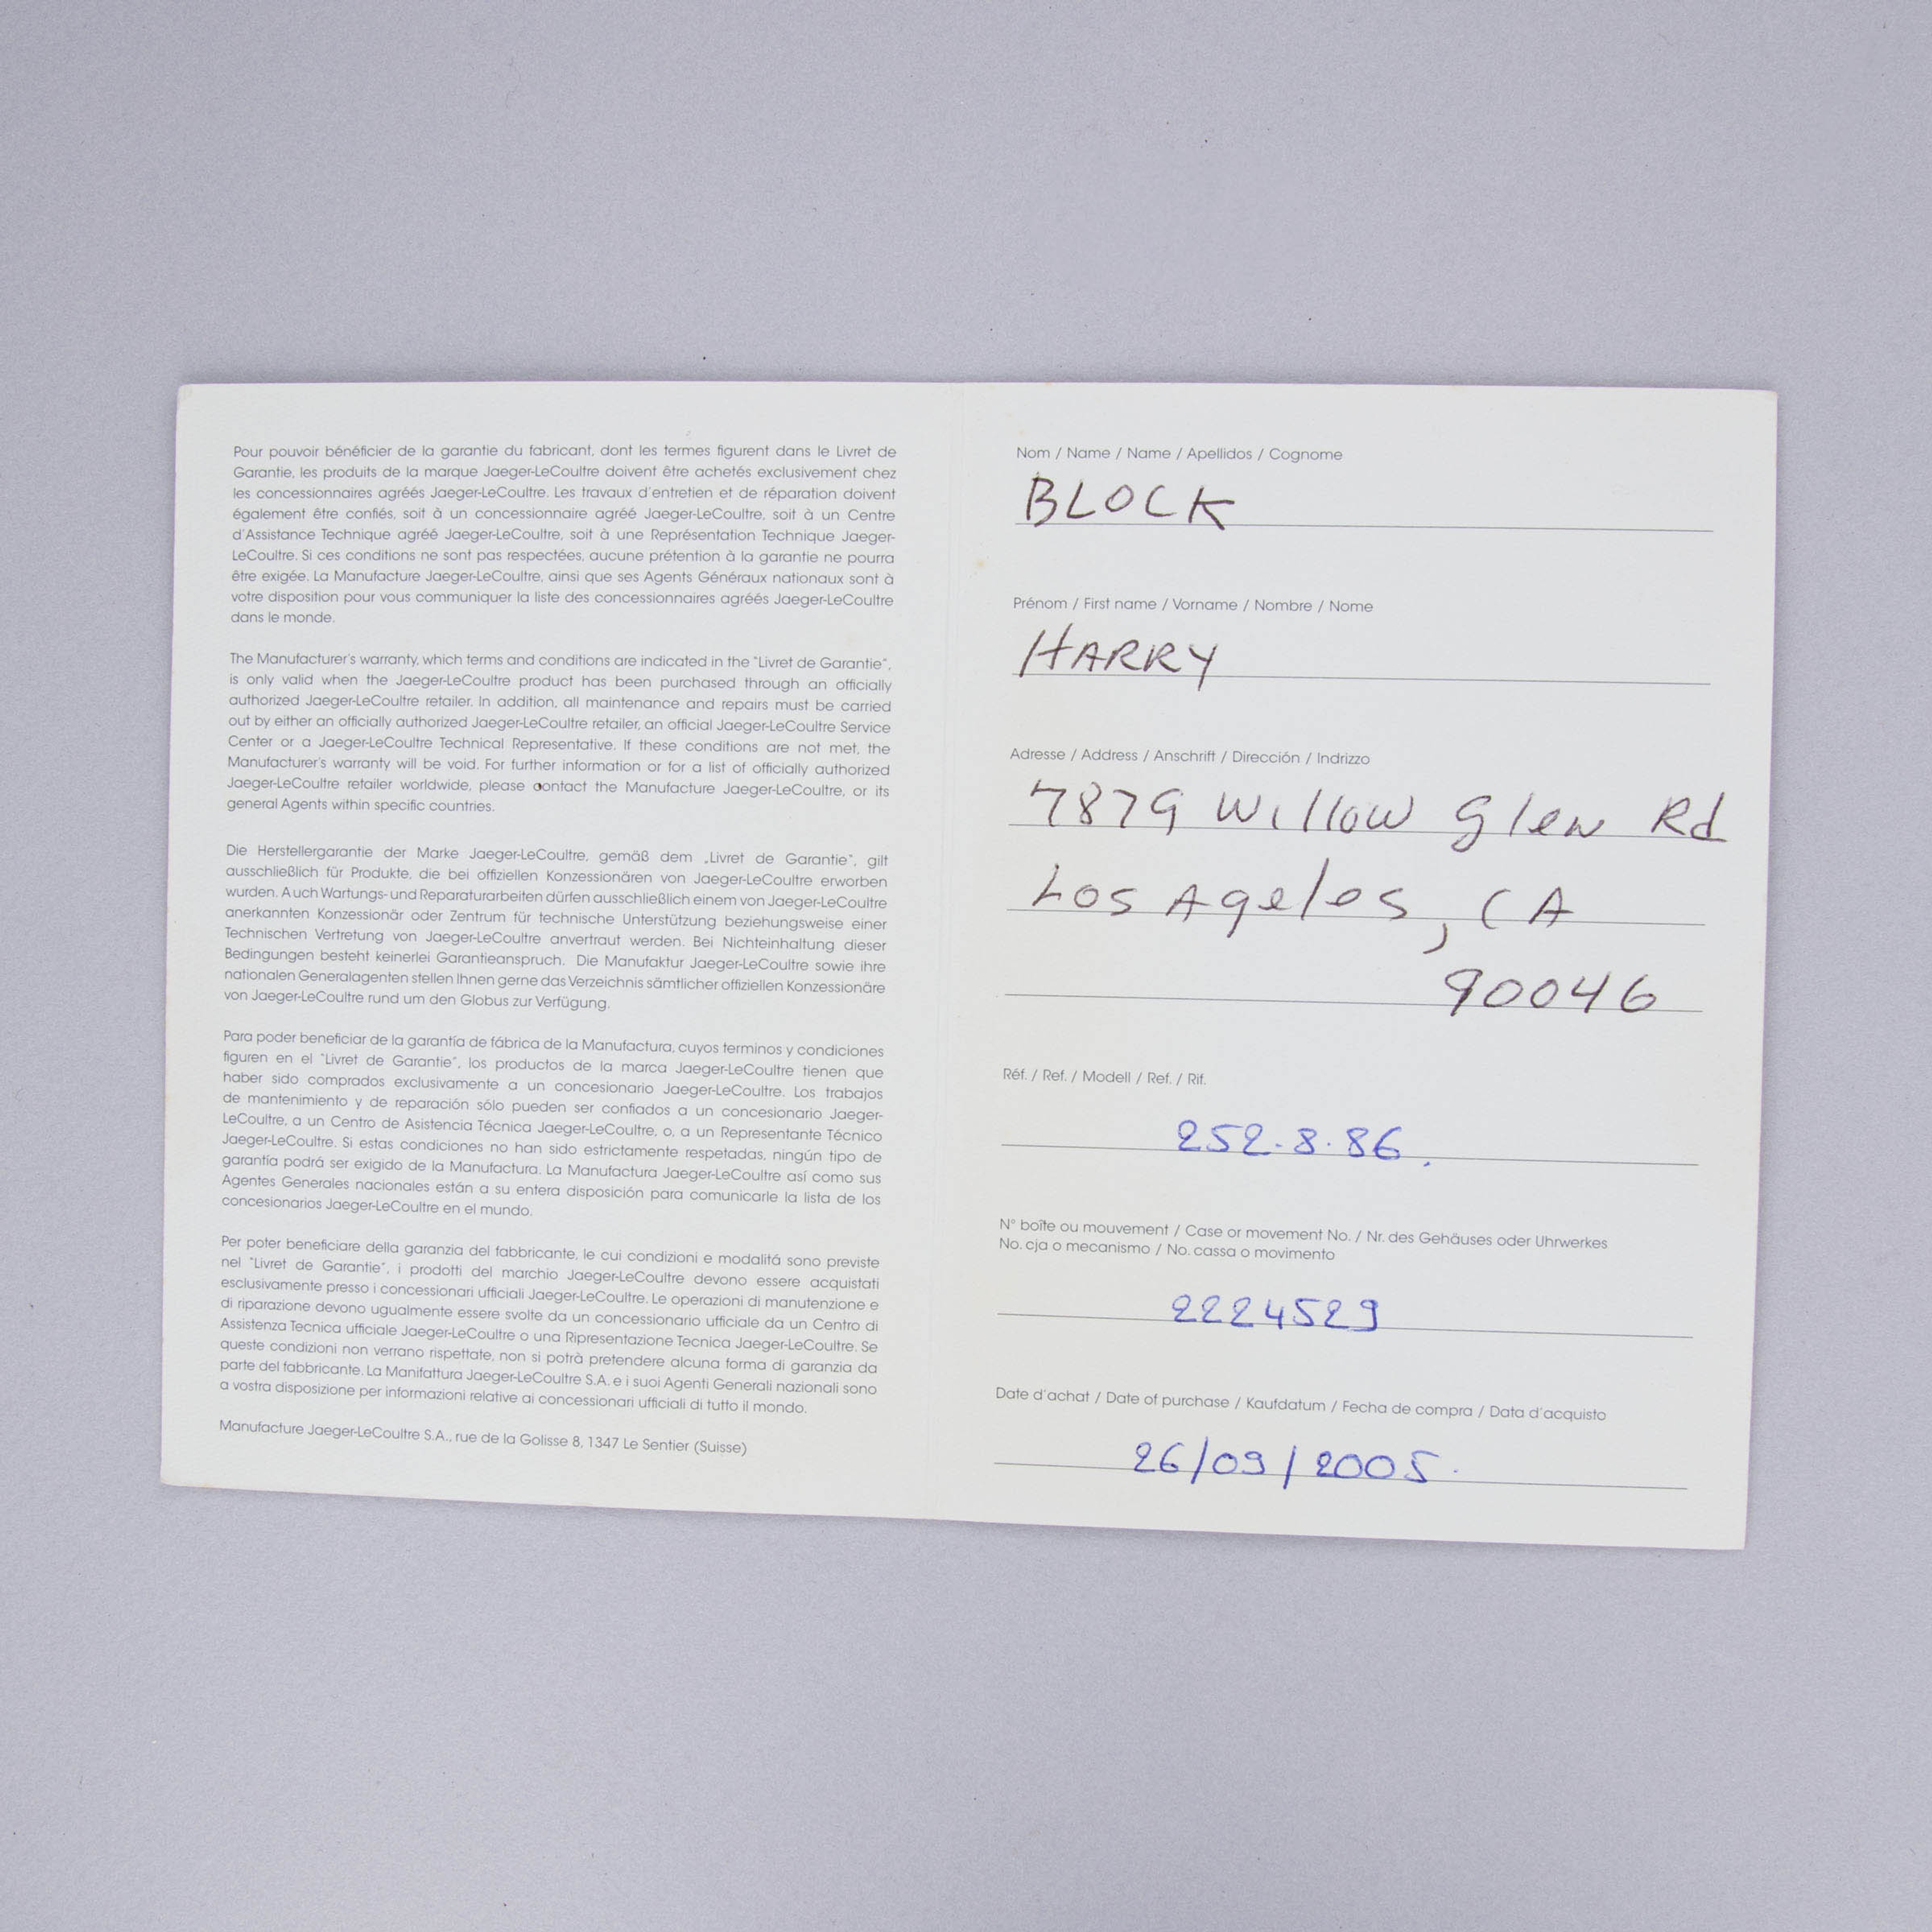 Pour pouvoir bénéficier de la garantie du fabricant, dont les termes figurent dans le Livret de
Garantie, les produits de la marque Jaeger-LeCoultre doivent être achetés exclusivement chez
les concessionnaires agréés Jaeger-LeCoultre. Les travaux d'entretien et de réparation doivent
également être confiés, soit à un concessionnaire agréé Jaeger-LeCoultre, soit à un Centre
d'Assistance Technique agréé Jaeger-LeCoultre, soit à une Représentation Technique Jaeger-
LeCoultre. Si ces conditions ne sont pas respectées, aucune prétention à la garantie ne pourra
être exigée. La Manufacture Jaeger-LeCoultre, ainsi que ses Agents Généraux nationaux sont à
votre disposition pour vous communiquer la liste des concessionnaires agréés Jaeger-LeCoultre
dans le monde.
The Manufacturer's warranty, which terms and conditions are indicated in the "Livret de Garantie",
is only valid when the Jaeger-LeCoultre product has been purchased through an officially
authorized Jaeger-LeCoultre retailer. In addition, all maintenance and repairs must be carried
out by either an officially authorized Jaeger-LeCoultre retailer, an official Jaeger-LeCoultre Service
Center or a Jaeger-LeCoultre Technical Representative. If these conditions are not met, the
Manufacturer's warranty will be void. For further information or for a list of officially authorized
Jaeger-LeCoultre retailer worldwide, please contact the Manufacture Jaeger-LeCoultre, or its
general Agents within specific countries.
Die Herstellergarantie der Marke Jaeger-LeCoultre, gemäß dem „Livret de Garantie", gilt
ausschließlich für Produkte, die bei offiziellen Konzessionären von Jaeger-LeCoultre erworben
wurden. Auch Wartungs- und Reparaturarbeiten dürfen ausschließlich einem von Jaeger-LeCoultre
anerkannten Konzessionär oder Zentrum für technische Unterstützung beziehungsweise einer
Technischen Vertretung von Jaeger-LeCoultre anvertraut werden. Bei Nichteinhaltung dieser
Bedingungen besteht keinerlei Garantieanspruch. Die Manufaktur Jaeger-LeCoultre sowie ihre
nationalen Generalagenten stellen Ihnen gerne das Verzeichnis sämtlicher offiziellen Konzessionäre
von Jaeger-LeCoultre rund um den Globus zur Verfügung.
Para poder beneficiar de la garantía de fábrica de la Manufactura, cuyos terminos y condiciones
figuren en el "Livret de Garantie", los productos de la marca Jaeger-LeCoultre tienen que
haber sido comprados exclusivamente a un concesionario Jaeger-LeCoultre. Los trabajos
de mantenimiento y de reparación sólo pueden ser confiados a un concesionario Jaeger-
LeCoultre, a un Centro de Asistencia Técnica Jaeger-LeCoultre, o, a un Representante Técnico
Jaeger-LeCoultre. Si estas condiciones no han sido estrictamente respetadas, ningún tipo de
garantía podrá ser exigido de la Manufactura. La Manufactura Jaeger-LeCoultre así como sus
Agentes Generales nacionales están a su entera disposición para comunicarle la lista de los
concesionarios Jaeger-LeCoultre en el mundo.
Per poter beneficiare della garanzia del fabbricante, le cui condizioni e modalitá sono previste
nel "Livret de Garantie", i prodotti del marchio Jaeger-LeCoultre devono essere acquistati
esclusivamente presso i concessionari ufficiali Jaeger-LeCoultre. Le operazioni di manutenzione e
di riparazione devono ugualmente essere svolte da un concessionario ufficiale da un Centro di
Assistenza Tecnica ufficiale Jaeger-LeCoultre o una Ripresentazione Tecnica Jaeger-LeCoultre. Se
queste condizioni non verrano rispettate, non si potrà pretendere alcuna forma di garanzia da
parte del fabbricante. La Manifattura Jaeger-LeCoultre S.A. e i suoi Agenti Generali nazionali sono
a vostra disposizione per informazioni relative ai concessionari ufficiali di tutto il mondo.
Manufacture Jaeger-LeCoultre S.A., rue de la Golisse 8, 1347 Le Sentier (Suisse)
Nom / Name / Name / Apellidos / Cognome
BLOCK
Prénom / First name / Vorname / Nombre / Nome
HARRY
Adresse / Address / Anschrift / Dirección / Indrizzo
7879 Willow Glen Rd
Los Ageles, CA
90046
Réf. / Ref. / Modell / Ref. / Rif.
252.8.86.
N° boîte ou mouvement / Case or movement No. / Nr. des Gehäuses oder Uhrwerkes
No. cja o mecanismo / No. cassa o movimento
2224529
Date d'achat / Date of purchase / Kaufdatum / Fecha de compra / Data d'acquisto
26/09/2005.